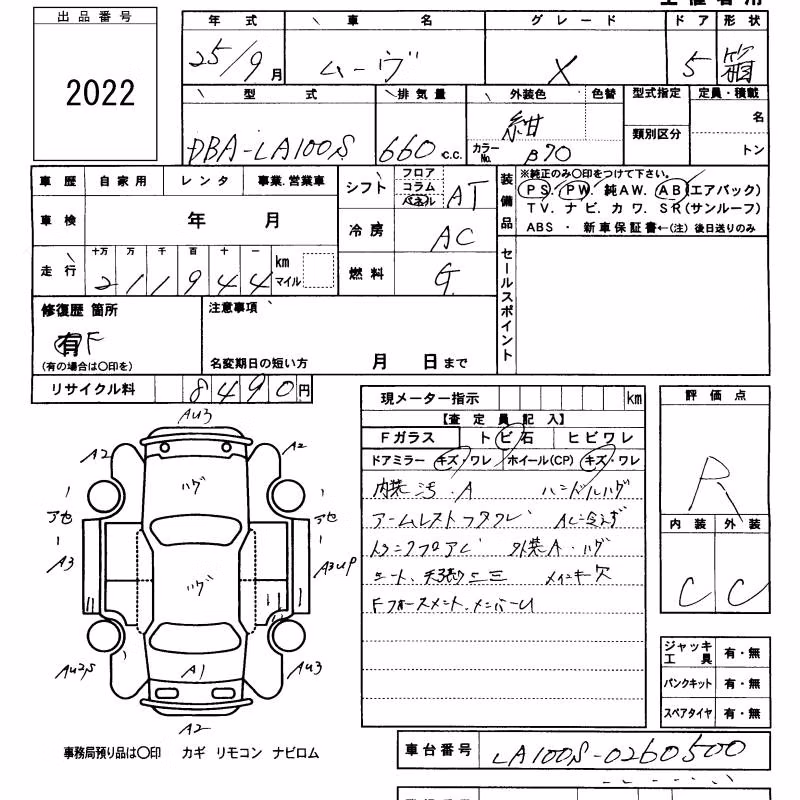 出品番号
2022
年式 車名 グレード ドア 形状
25/9月 ムーヴ X 5 箱
型式 排気量 外装色 色替 型式指定 定員・積載
DBA-LA100S 660 c.c. 紺 類別区分 名
カラーNo. B70 トン
車歴 自家用 レンタ 事業.営業車
車検 年 月
走行 十万 万 千 百 十 一
211944 km マイル
シフト フロア コラム パネル AT
冷房 AC
燃料 G
装備品
※純正のみ〇印をつけて下さい。
PS. PW. 純AW. AB(エアバック)
TV. ナビ. カワ. SR(サンルーフ)
ABS ・ 新車保証書←(注) 後日送りのみ
セールスポイント
修復歴 箇所
有 F
(有の場合は〇印を)
注意事項
名変期日の短い方 月 日まで
リサイクル料 8490円
現メーター指示 km
【査定員記入】
Fガラス トビ石 ヒビワレ
ドアミラー キズ・ワレ ホイール(CP) キズ・ワレ
内装汚.A ハンドルハゲ
アームレストフタワレ
トランクフロアU 外装A.ハゲ
シート、天張り メインキー欠
Fフォースメント.メンバーU
評価点
R
内装 外装
C C
ジャッキ工具 有・無
パンクキット 有・無
スペアタイヤ 有・無
AU3
A2 A2
ハゲ
A3 A3UP
ハゲ
AU2S A1 AU3
A2
事務局預り品は〇印 カギ リモコン ナビロム
車台番号 LA100S-0260500